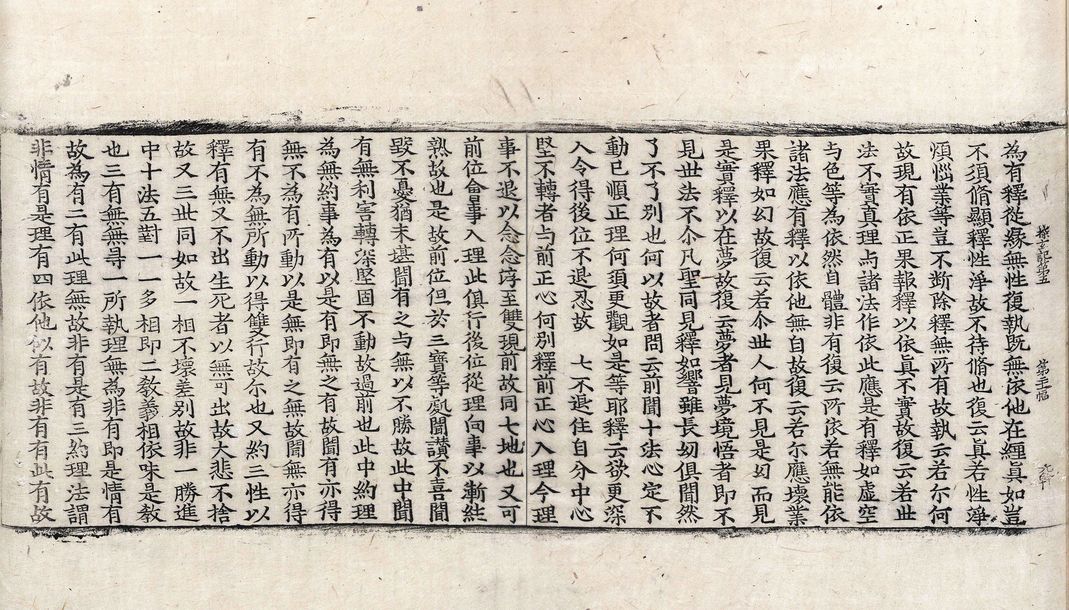 為有釋從緣無性復執既無依他在經真如豈
不須脩顯釋性淨故不待脩也復云真若性淨
煩惱業等豈不斷除釋無所有故執云若尔何
故現有依正果報釋以依真不實故復云若世
法不實真理与諸法作依此應是有釋如虛空
与色等為依然自體非有復云所依若無能依
諸法應有釋以依他無自故復云若尔應壞業
果釋如幻故復云若尒世人何不見是幻而見
是實釋以在夢故復云夢者見夢境悟者即不
見世法不尒凡聖同見釋如響雖長幼俱聞然
了不了別也何以故者問云前聞十法心定不
動已順正理何須更觀如是等耶釋云欲更深
入令得後位不退忍故　七不退住自分中心
堅不轉者与前正心何別釋前正心入理今理
事不退以念念淳至雙現前故同七地也又可
前位會事入理此俱行後位從理向事以漸純
熟故也是故前位但於三寶等處聞讚不喜聞
毀不憂猶未甚聞有之与無以不勝故此中聞
有無利害轉深堅固不動故過前也此中約理
為無約事為有以是有即無之有故聞有亦得
無不為有所動以是無即有之無故聞無亦得
有不為無所動以得雙行故尔也又約三性以
釋有無又不出生死者以無可出故大悲不捨
故又三世同如故一相不壞差別故非一勝進
中十法五對一一多相即二教義相依味是教
也三有無無㝵一所執理無為非有即是情有
故為有二有此理無故非有是有三約理法謂
非情有是理有四依他似有故非有有此有故